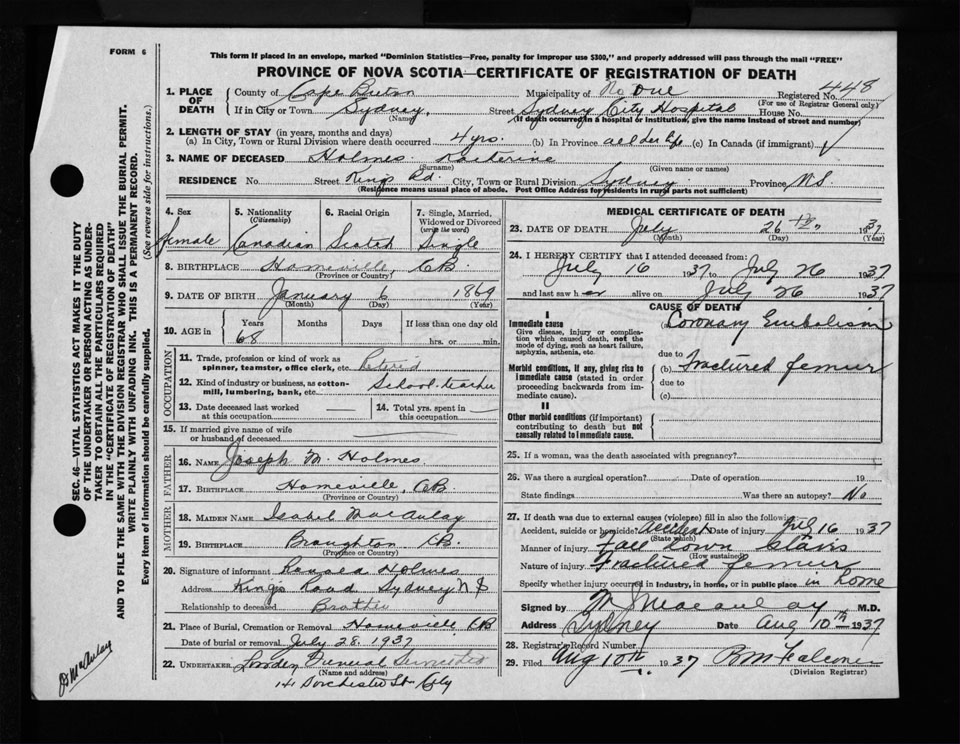 FORM 6
This form if placed in an envelope, marked "Dominion Statistics—Free, penalty for improper use $300," and properly addressed will pass through the mail "FREE"
PROVINCE OF NOVA SCOTIA—CERTIFICATE OF REGISTRATION OF DEATH
448
1. PLACE OF DEATH County of Cape Breton Municipality of No One Registered No.
(For use of Registrar General only)
If in City or Town Sydney, Street Sydney City Hospital House No.
(Name) (If death occurred in a hospital or institution, give the name instead of street and number)
2. LENGTH OF STAY (in years, months and days)
(a) In City, Town or Rural Division where death occurred 4 yrs. (b) In Province all her life (c) In Canada (if immigrant)
3. NAME OF DECEASED Holmes Katherine
(Surname) (Given name or names)
RESIDENCE No. Street Kings Rd. City, Town or Rural Division Sydney Province N.S.
(Residence means usual place of abode. Post Office Address for residents in rural parts not sufficient)
4. Sex 5. Nationality (Citizenship) 6. Racial Origin 7. Single, Married, Widowed or Divorced (write the word)
female Canadian Scotch Single
8. BIRTHPLACE Homeville, CB
(Province or Country)
9. DATE OF BIRTH January 6 1869
(Month) (Day) (Year)
10. AGE in Years Months Days If less than one day old
68 hrs. or min.
OCCUPATION
11. Trade, profession or kind of work as spinner, teamster, office clerk, etc. Retired
12. Kind of industry or business, as cotton-mill, lumbering, bank, etc. School teacher
13. Date deceased last worked at this occupation 14. Total yrs. spent in this occupation
15. If married give name of wife or husband of deceased
FATHER
16. NAME Joseph M. Holmes.
17. BIRTHPLACE Homeville, CB
(Province or Country)
MOTHER
18. MAIDEN NAME Isabel MacAulay
19. BIRTHPLACE Broughton CB.
(Province or Country)
20. Signature of informant Holmes
Address King's Road Sydney N S
Relationship to deceased Brother
21. Place of Burial, Cremation or Removal Homeville CB
Date of burial or removal July 28. 1937
22. UNDERTAKER Funeral
(Name and address)
141 Dorchester St City
MEDICAL CERTIFICATE OF DEATH
23. DATE OF DEATH July 26 th, 1937
(Month) (Day) (Year)
24. I HEREBY CERTIFY that I attended deceased from:
July 16 1937 to July 26 1937
and last saw her alive on July 26 1937
CAUSE OF DEATH
I
Immediate cause Coronary Embolism
Give disease, injury or complication which caused death, not the mode of dying, such as heart failure, asphyxia, asthenia, etc.
due to
Morbid conditions, if any, giving rise to immediate cause (stated in order proceeding backwards from immediate cause).
(b) Fractured femur
due to
(c)
II
Other morbid conditions (if important) contributing to death but not causally related to immediate cause.
25. If a woman, was the death associated with pregnancy?
26. Was there a surgical operation? Date of operation 19
State findings Was there an autopsy? No
27. If death was due to external causes (violence) fill in also the following:
Accident, suicide or homicide? Accident Date of injury July 16 1937
(State which)
Manner of injury Fall down stairs
(How sustained)
Nature of injury Fractured femur
Specify whether injury occurred in industry, in home, or in public place in home
Signed by Macaulay M.D.
Address Sydney Date Aug 10th 1937
28. Registrar's Record Number
29. Filed Aug 10th 1937 Falconer
(Division Registrar)
SEC. 46—VITAL STATISTICS ACT MAKES IT THE DUTY
OF THE UNDERTAKER OR PERSON ACTING AS UNDER-
TAKER TO OBTAIN ALL THE PARTICULARS REQUIRED
IN THE "CERTIFICATE OF REGISTRATION OF DEATH" AND TO FILE THE SAME WITH THE DIVISION REGISTRAR WHO SHALL ISSUE THE BURIAL PERMIT.
WRITE PLAINLY WITH UNFADING INK. THIS IS A PERMANENT RECORD.
Every item of information should be carefully supplied. (See reverse side for instructions.)
MacAulay